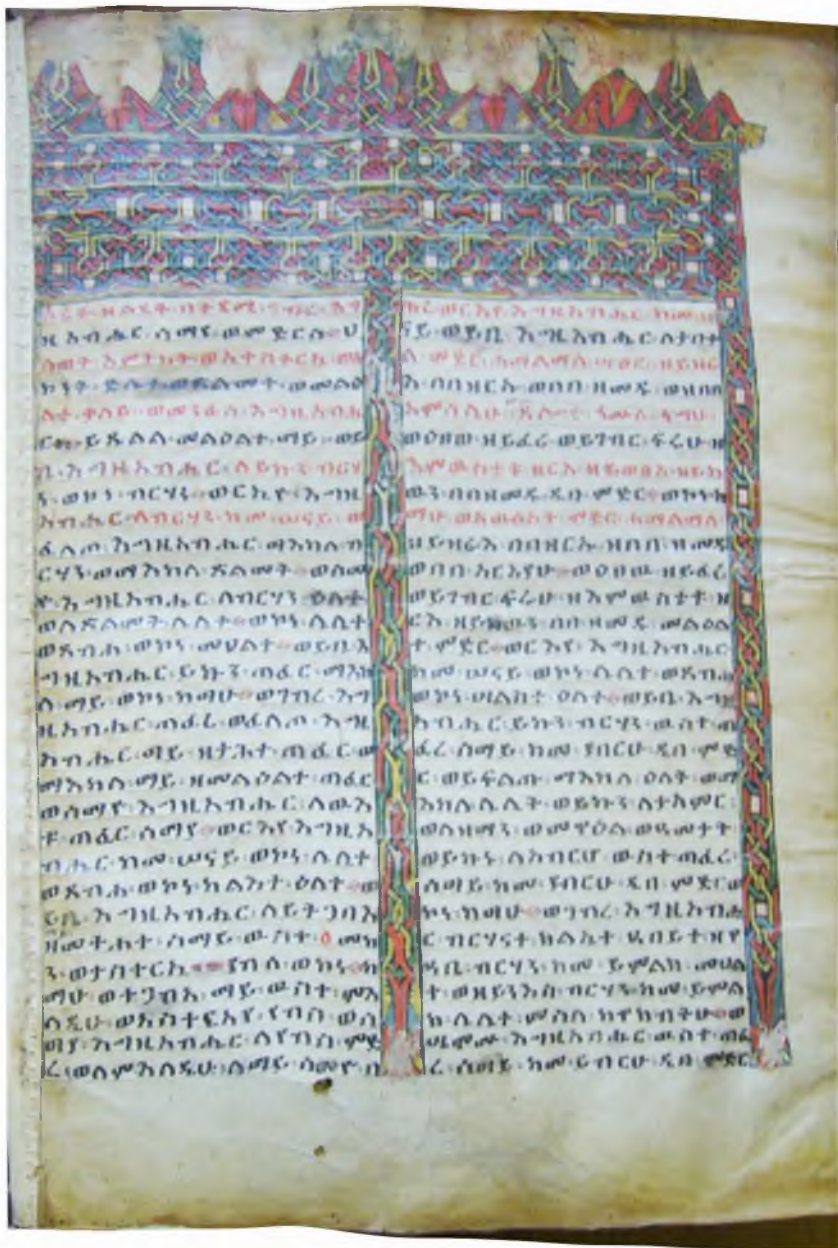 ዚአብሔር፡ሰማየ፡ወምድርሰ፡ሀ
ለወት፡እምትካት፡ወኢታስተርኢ፡ወኢ
ኮነት፡ድሉተ፡ወጽልመት፡ወመልዕ
ልተ፡ቀላይ፡ወመንፈሰ፡እግዚአብሔ
ር፡ይጼልል፡መልዕልተ፡ማይ፡ወይ
ቤ፡እግዚአብሔር፡ለይኩን፡ብርሃ
ን፡ወኮነ፡ብርሃን፡ወርእዮ፡እግዚ
አብሔር፡ለብርሃን፡ከመ፡ሠናይ፡ወ
ፈለጠ፡እግዚአብሔር፡ማእከለ፡ብ
ርሃን፡ወማእከለ፡ጽልመት፡ወሰመ
ዮ፡እግዚአብሔር፡ለብርሃን፡ዕለተ
ወለጽልመት፡ሌሊተ፡ወኮነ፡ሌሊተ
ወጸብሐ፡ወኮነ፡መዐልተ፡ወይቤ፡እ
ግዚአብሔር፡ይኩን፡ጠፈር፡ማእከ
ለ፡ማይ፡ወኮነ፡ከማሁ፡ወገብረ፡እግ
ዚአብሔር፡ጠፈረ፡ወፈለጠ፡እግዚ
አብሔር፡ማይ፡ዘታሕተ፡ጠፈር፡ወ
ማእከለ፡ማይ፡ዘመልዕልተ፡ጠፈር
ወሰማየ፡እግዚአብሔር፡ለውእ
ቱ፡ጠፈር፡ሰማየ፡ወርእየ፡እግዚአ
ብሔር፡ከመ፡ሠናይ፡ወኮነ፡ሌሊተ
ወጸብሐ፡ወኮነ፡ካልእተ፡ዕለተ፡ወ
ይቤ፡እግዚአብሔር፡ለይትጋባእ
ዘመትሕተ፡ሰማይ፡ውስተ፡፩፡መካ
ን፡ወታስተርኢ፡የብስ፡ወኮነ፡ከ
ማሁ፡ወተጋብአ፡ማይ፡ውስተ፡ምእ
ላዲሁ፡ወአስተርአየ፡የብስ፡ወሰ
መያ፡እግዚአብሔር፡ለየብስ፡ምድ
ረ፡ወለምእላዲሁ፡ለማይ፡ሰመዮ፡ባ
ሕረ፡ወርእየ፡እግዚአብሔር፡ከመ፡ሠ
ናይ፡ወይቤ፡እግዚአብሔር፡ለታብቍ
ል፡ምድር፡ሐመልማለ፡ሣዕር፡ዘይዘር
እ፡በበዘርኡ፡ወበበ፡ዘመዱ፡ወዘበበ
ወዕፀወ፡ዘይፈሪ፡ወይገብር፡ፍሬሁ፡ዘ
እምውስቴቱ፡ዘርኡ፡ዘይወፅእ፡ዘይከ
ውን፡በበዘመዱ፡ዲበ፡ምድር፡ወኮነ፡ከ
ማሁ፡ወአውፅአት፡ምድር፡ሐመልማለ
ዘይዘራእ፡በበዘርኡ፡ዘበበ፡ዘመዱ
ወበበ፡አርአያሁ፡ወዕፀወ፡ዘይፈሪ
ወይገብር፡ፍሬሁ፡ዘእምውስቴቱ፡ዘ
ርኡ፡ዘይከውን፡በበ፡ዘመዱ፡መልዕል
ተ፡ምድር፡ወርእየ፡እግዚአብሔር
ከመ፡ሠናይ፡ወኮነ፡ሌሊተ፡ወጸብሐ
ወኮነ፡ሣልስተ፡ዕለተ፡ወይቤ፡እግዚ
አብሔር፡ይኩን፡ብርሃን፡ውስተ፡ጠ
ፈረ፡ሰማይ፡ከመ፡ያብርሁ፡ዲበ፡ምድ
ር፡ወይፍልጡ፡ማእከለ፡ዕለት፡ወማ
እከለ፡ሌሊት፡ወይኩን፡ለተአምር፡
ወለዘመን፡ወመዋዕል፡ወዓመታት
ወይኩኑ፡ለአብርሆ፡ውስተ፡ጠፈረ፡
ሰማይ፡ከመ፡ያብርሁ፡ዲበ፡ምድር፡ወ
ኮነ፡ከማሁ፡ወገብረ፡እግዚአብሔ
ር፡ብርሃናተ፡ክልኤተ፡ዐበይተ፡ዘየ
ዓቢ፡ብርሃን፡ከመ፡ይምልክ፡መዐል
ተ፡ወዘይንእስ፡ብርሃን፡ከመ፡ይምል
ክ፡ሌሊተ፡ምስለ፡ከዋክብቲሁ፡ወ
ሤሞሙ፡እግዚአብሔር፡ውስተ፡ጠፈ
ረ፡ሰማይ፡ከመ፡ያብርሁ፡ዲበ፡ምድር